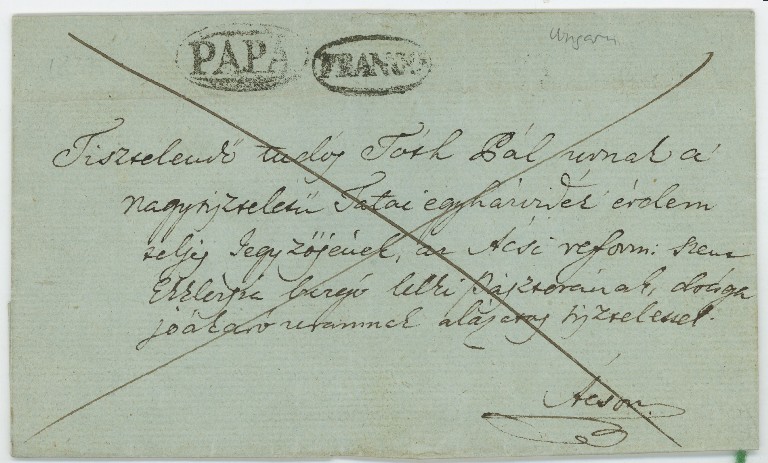 Ungarn
PÁPA FRANCO
Tisztelendő tudós Tóth Pál urnak a
nagytiszteletü Tatai egyházvidék érdem
teljes Jegyzőjének, az Ácsi reform: szent
Ekklézsia buzgó lelki Pásztorának, drága
jóakaró uramnak alázatos tisztelettel.
Ácson.